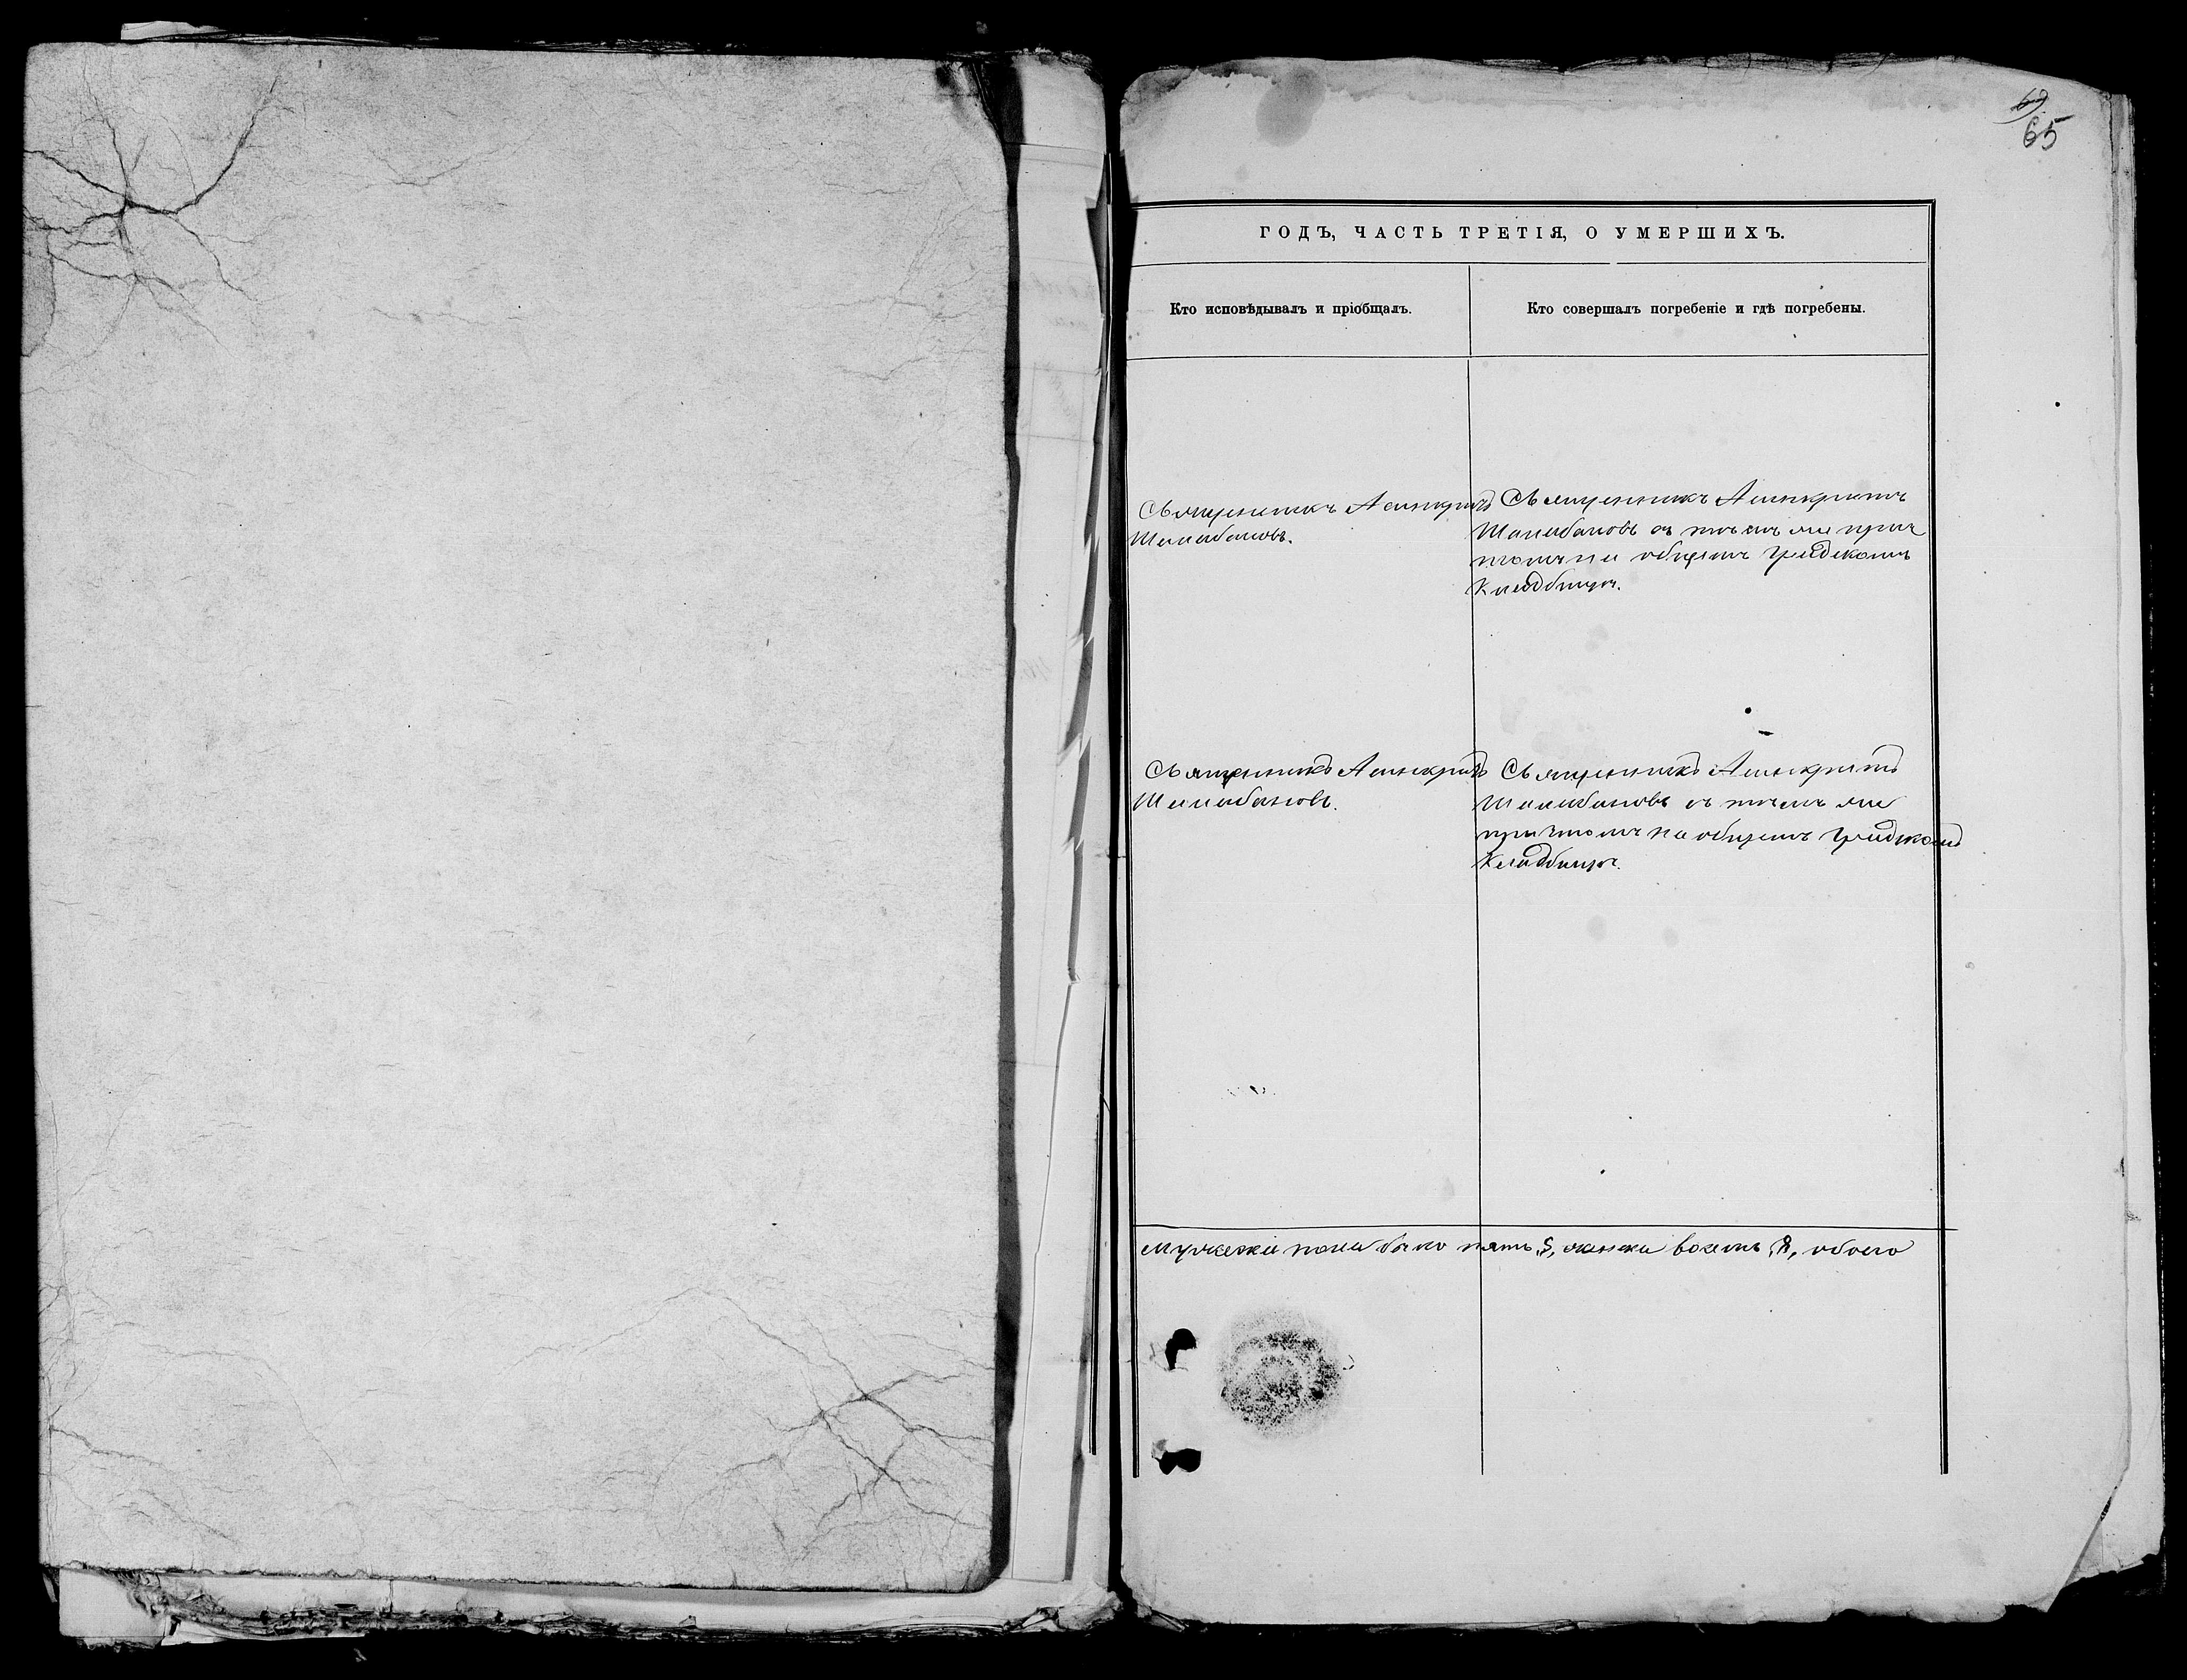 65
ГОДЪ, ЧАСТЬ ТРЕТІЯ, О УМЕРШИХЪ.
Кто исповѣдывалъ и пріобщалъ.
Кто совершалъ погребеніе и гдѣ погребены.
Священникъ Асинкритъ
Шалабановъ.
Священникъ Асинкритъ
Шалабановъ съ тѣмъ же прич
томъ на общемъ градскомъ
Кладбищѣ.
Священникъ Асинкритъ
Шалабановъ.
Священникъ Асинкритъ
Шалабановъ съ тѣмъ же
причтомъ на общемъ градскомъ
Кладбищѣ.
Мужеска пола было пять 5, женска восемь 8, обоего